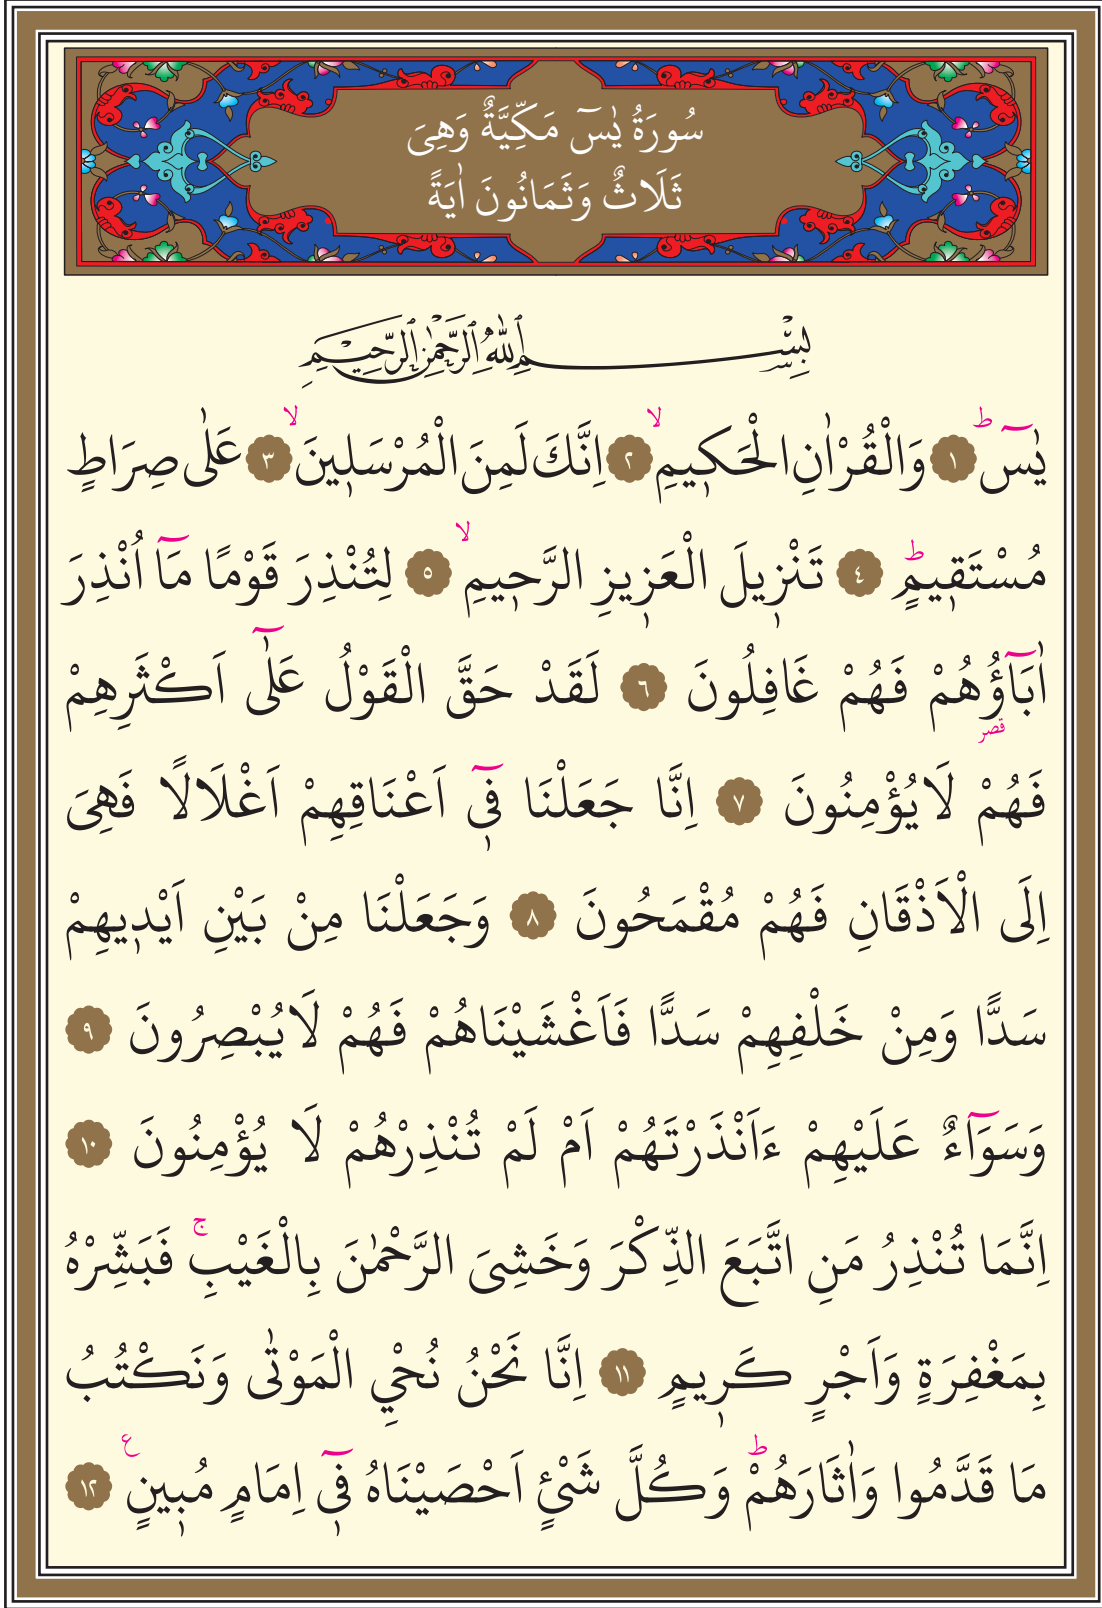 سُورَةُ يٰسٓ مَكِّيَّةٌ وَهِىَ
ثَلَاثٌ وَثَمَانُونَ اٰيَةً
بِسْمِ اللّٰهِ الرَّحْمٰنِ الرَّحِيمِ
يٰسٓ ۜ ﴿١﴾ وَالْقُرْاٰنِ الْحَكٖيمِ ۙ ﴿٢﴾ اِنَّكَ لَمِنَ الْمُرْسَلٖينَ ۙ ﴿٣﴾ عَلٰى صِرَاطٍ
مُسْتَقٖيمٍ ؕ ﴿٤﴾ تَنْزٖيلَ الْعَزٖيزِ الرَّحٖيمِ ۙ ﴿٥﴾ لِتُنْذِرَ قَوْمًا مَٓا اُنْذِرَ
اٰبَٓاؤُ۬هُمْ فَهُمْ غَافِلُونَ ﴿٦﴾ لَقَدْ حَقَّ الْقَوْلُ عَلٰٓى اَكْثَرِهِمْ
قصر
فَهُمْ لَا يُؤْمِنُونَ ﴿٧﴾ اِنَّا جَعَلْنَا فٖٓى اَعْنَاقِهِمْ اَغْلَالًا فَهِىَ
اِلَى الْاَذْقَانِ فَهُمْ مُقْمَحُونَ ﴿٨﴾ وَجَعَلْنَا مِنْ بَيْنِ اَيْدٖيهِمْ
سَدًّا وَمِنْ خَلْفِهِمْ سَدًّا فَاَغْشَيْنَاهُمْ فَهُمْ لَا يُبْصِرُونَ ﴿٩﴾
وَسَوَٓاءٌ عَلَيْهِمْ ءَاَنْذَرْتَهُمْ اَمْ لَمْ تُنْذِرْهُمْ لَا يُؤْمِنُونَ ﴿١٠﴾
اِنَّمَا تُنْذِرُ مَنِ اتَّبَعَ الذِّكْرَ وَخَشِىَ الرَّحْمٰنَ بِالْغَيْبِ ۚ فَبَشِّرْهُ
بِمَغْفِرَةٍ وَاَجْرٍ كَرٖيمٍ ﴿١١﴾ اِنَّا نَحْنُ نُحْيِ الْمَوْتٰى وَنَكْتُبُ
مَا قَدَّمُوا وَاٰثَارَهُمْ ؕ وَكُلَّ شَيْءٍ اَحْصَيْنَاهُ فٖٓى اِمَامٍ مُبٖينٍ ع ﴿١٢﴾